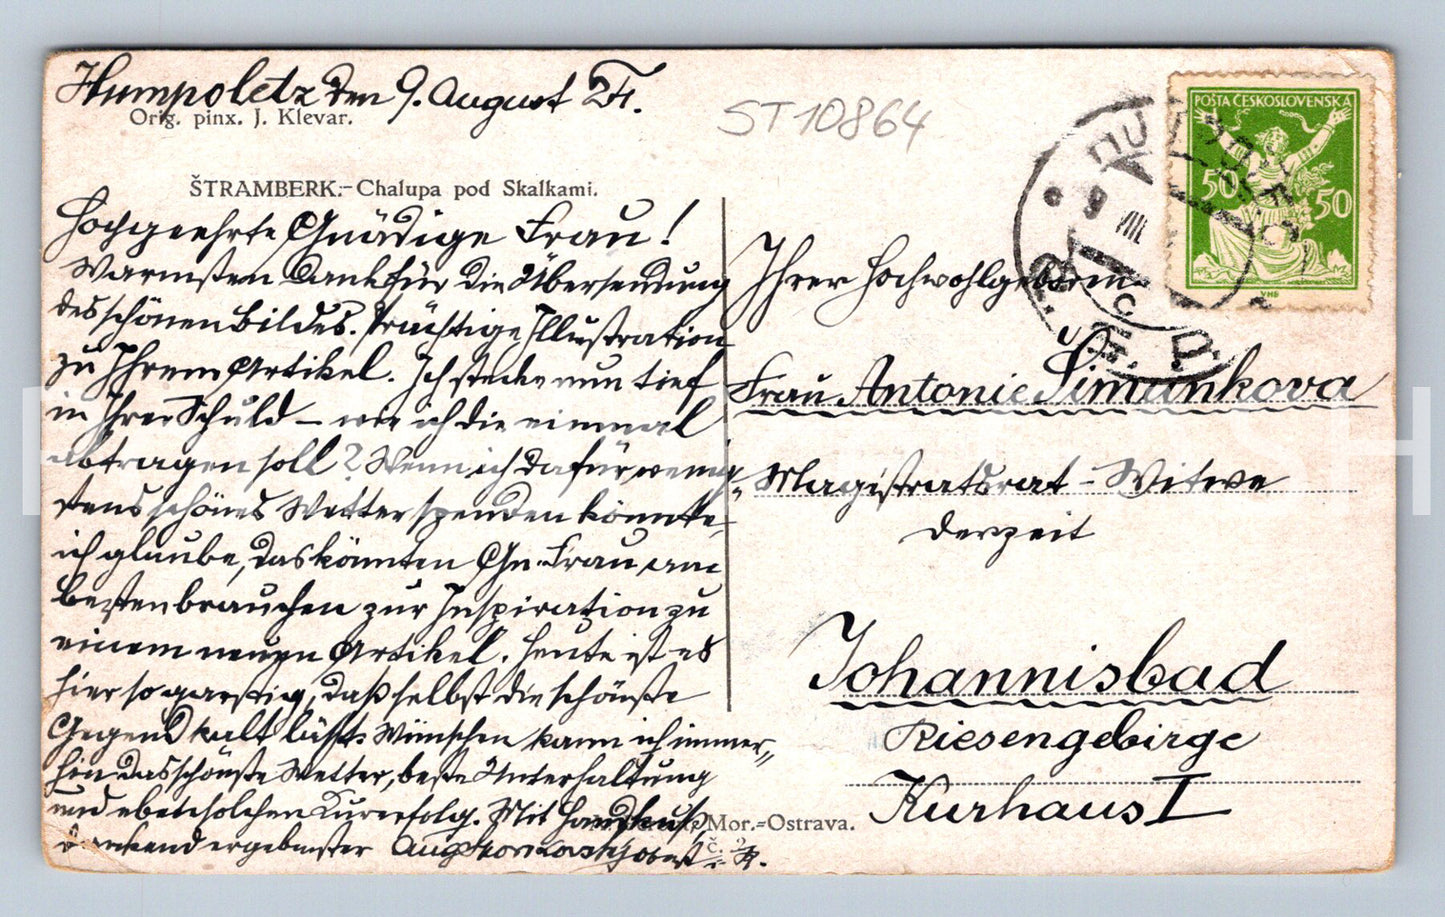 Humpoletz den 9. August 24.
Orig. pinx. J. Klevar.
ŠTRAMBERK.-Chalupa pod Skalkami.
ST10864
Hochgeehrte Gnädige Frau!
Warmsten Dank für die Übersendung
des schönen Bildes. Prächtige Illustration
zu Ihrem Artikel. Ich stecke nun tief
in Ihrer Schuld – wie ich die einmal
abtragen soll? Wenn ich dafür wenig-
stens schönes Wetter spenden könnte,
ich glaube, das könnten Gn. Frau am
besten brauchen zur Inspiration zu
einem neuen Artikel. Heute ist es
hier so garstig, daß selbst die schönste
Gegend kalt läßt. Wünschen kann ich immer,,
hin das schönste Wetter, beste Unterhaltung
und ebensolchen Kurerfolg. Mit Handkuß
dankend ergebenster Aug. Oberst i. R.
Mor.-Ostrava.
POŠTA ČESKOSLOVENSKÁ
50 50
9 VIII
Ihrer Hochwohlgeboren
Frau Antonie Simunkova
Magistratsrat-Witwe
derzeit
Johannisbad
Riesengebirge
Kurhaus I